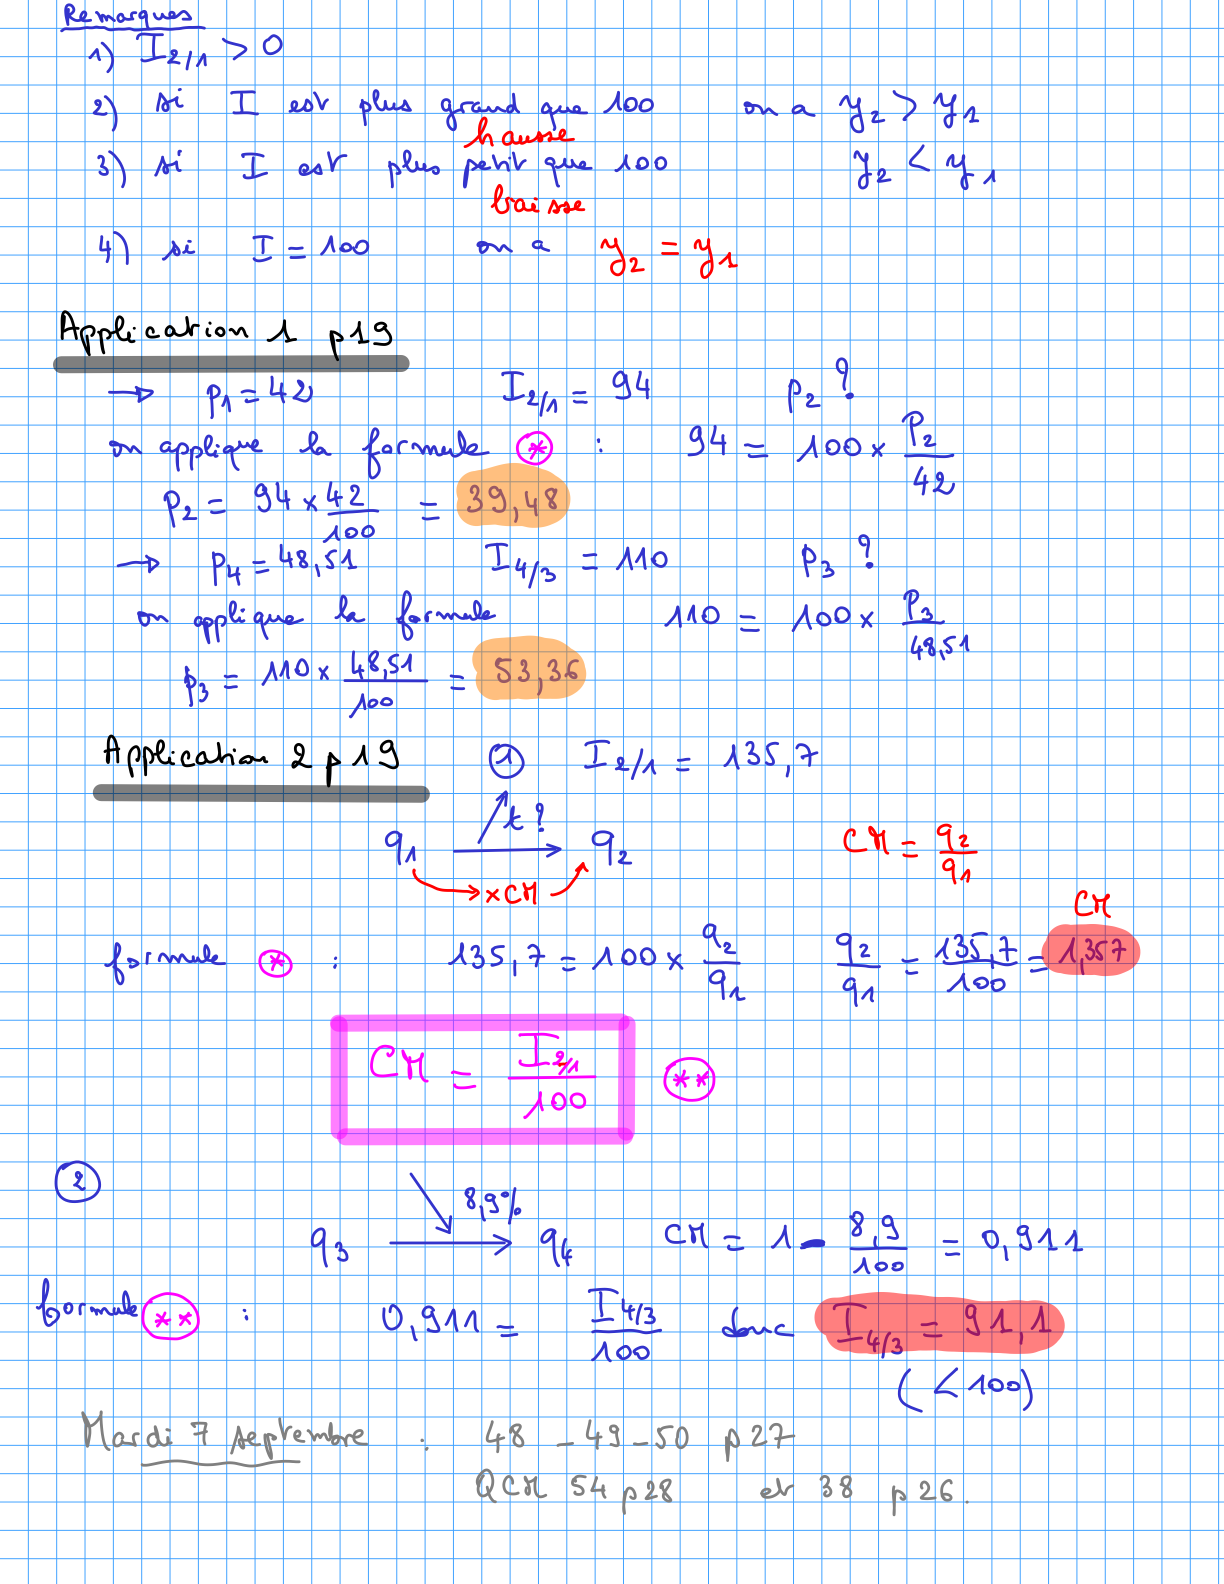 Remarques
1) I2/1 > 0
2) si I est plus grand que 100 on a y2 > y1
hausse
3) si I est plus petit que 100 y2 < y1
baisse
4) si I = 100 on a y2 = y1
Application 1 p19
→ p1 = 42 I2/1 = 94 p2 ?
on applique la formule (*) : 94 = 100 × P2/42
P2 = 94 × 42/100 = 39,48
→ P4 = 48,51 I4/3 = 110 p3 ?
on applique la formule 110 = 100 × P3/48,51
p3 = 110 × 48,51/100 = 53,36
Application 2 p19 ① I2/1 = 135,7
t?
q1 → q2 CM = q2/q1
×CM
CM
formule (*) : 135,7 = 100 × q2/q1 q2/q1 = 135,7/100 = 1,357
CM = I2/1/100 (**)
②
8,9%
q3 → q4 CM = 1 - 8,9/100 = 0,911
formule (**) : 0,911 = I4/3/100 donc I4/3 = 91,1
(< 100)
Mardi 7 septembre : 48 - 49 - 50 p27
QCM 54 p28 et 38 p26.